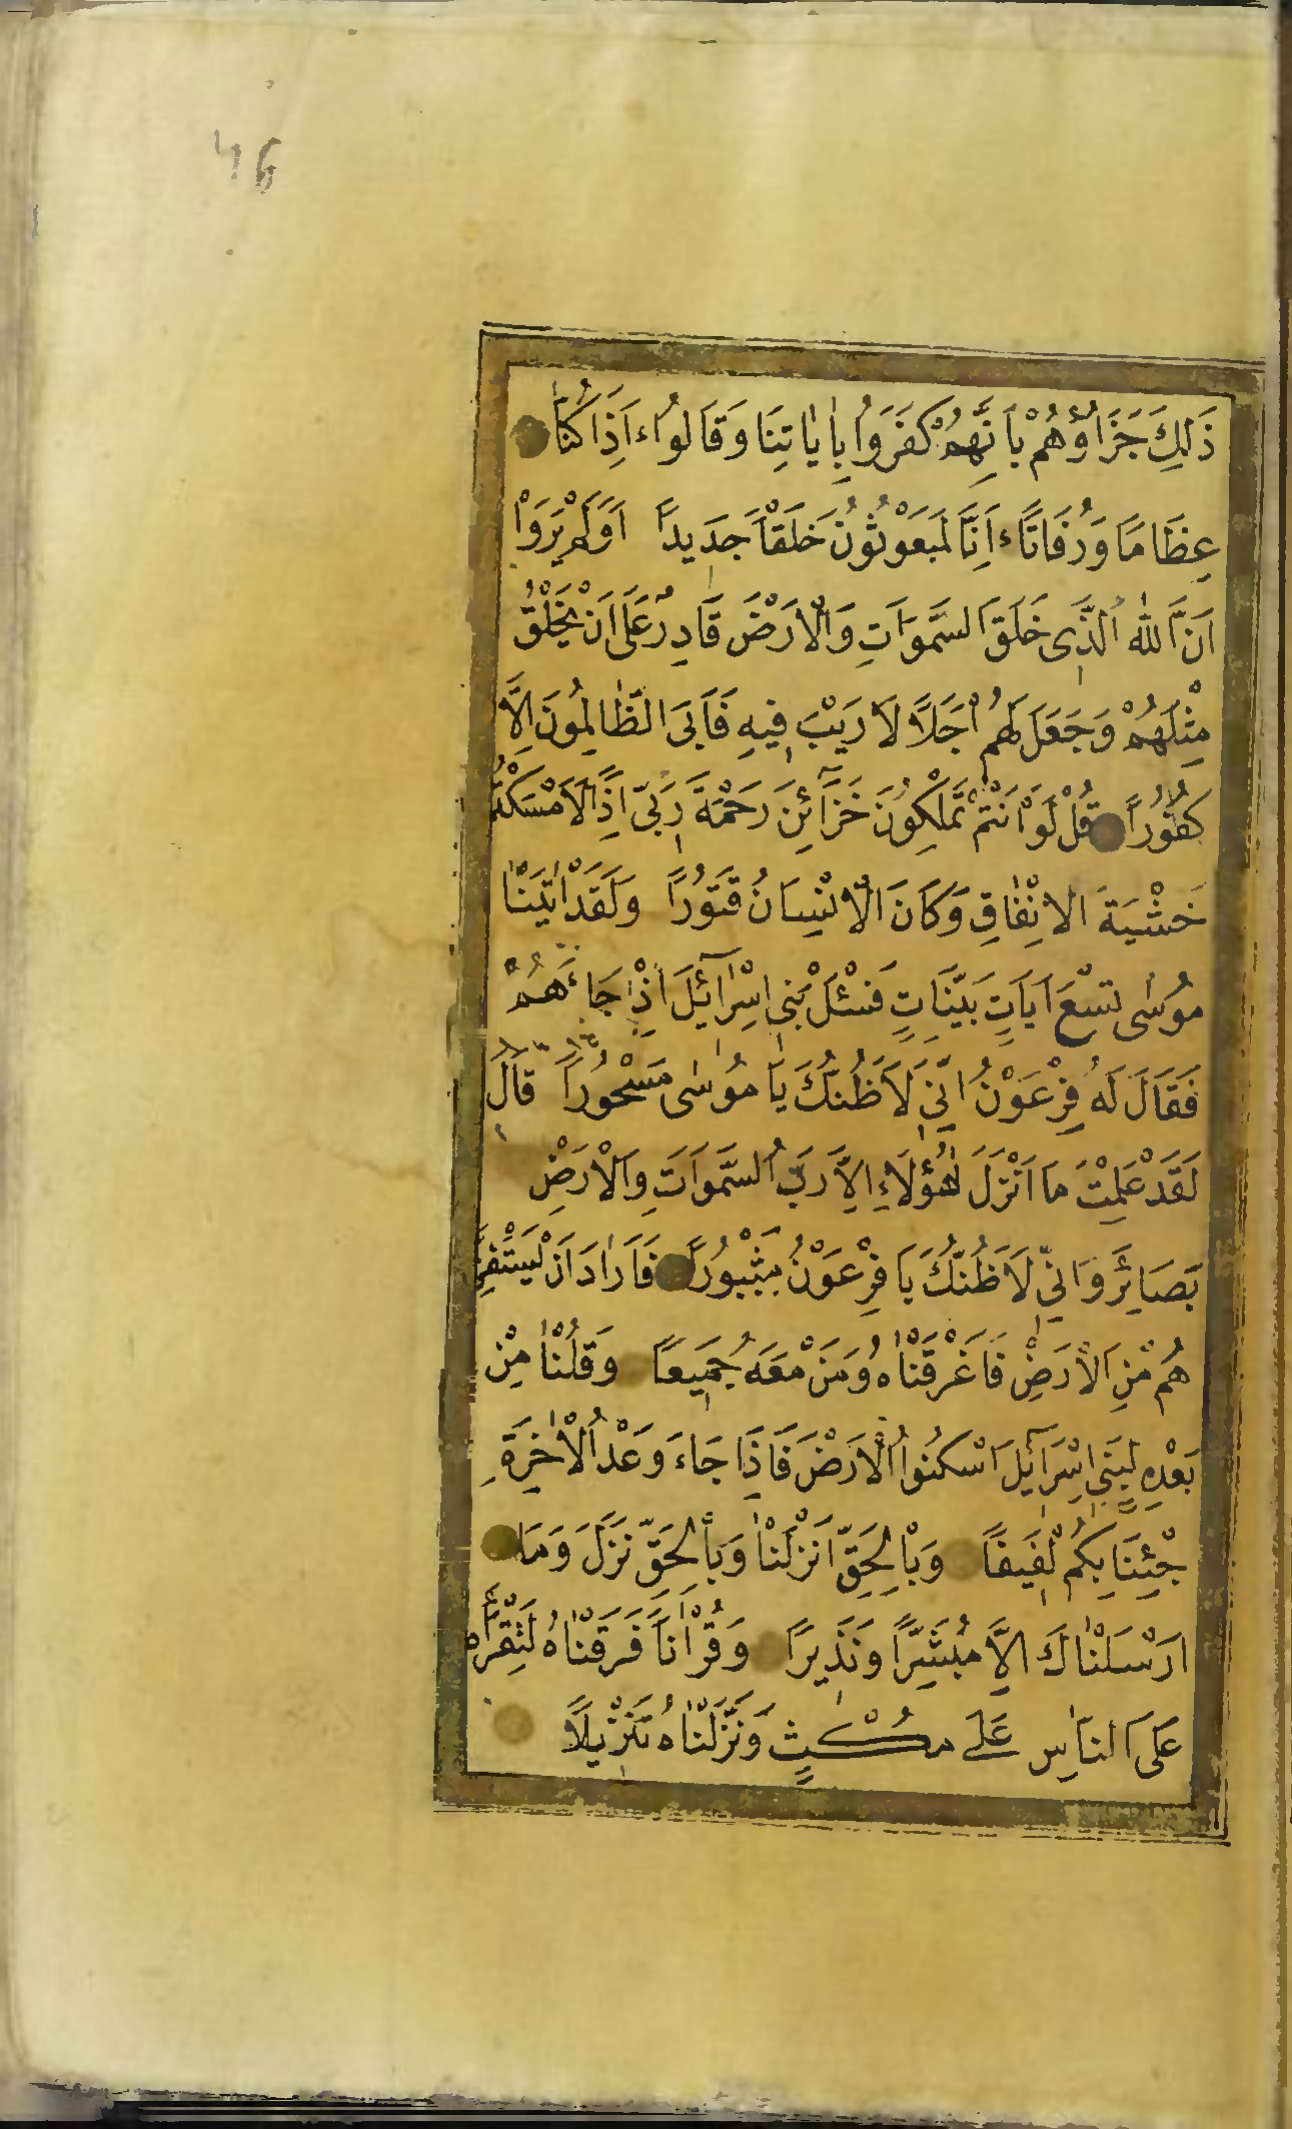 46
ذَلِكَ جَزَاؤُهُمْ بِاَنَّهُمْ كَفَرَوُا بِاٰيٰاتِنَا وَقَالوُاءَ اِذَا كُنَّا
عِظَامًا وَرُفَاتًاءَ اِنَّا لَمَبَعْوُثوُنَ خَلَقْاً جَدَيدًا اَوَلَمْ يَرَوْا
اَنَّ اللّٰهَ الَّذَى خَلَقَ السَّمٰوَاتِ وَالْاَرَضْ قَادِرٌ عَلَى اَنْ يَخْلُقَ
مِثْلَهُمْ وَجَعَلَ لَهُمْ اَجَلًا لَا رَيَبْ فِيهِ فَاَبَى الظّٰالِمُونَ اِلَّا
كُفُوُرًا قُلْ لَوْ اَنْتُمْ تَمْلِكوُنَ خَزَآئِنَ رَحْمَةَ رَبّىِ اِذًا لَاَمْسَكْتُمْ
خَشْيَةَ الْاِنْفٰاقِ وَكَانَ الْاِنْسٰانُ قَتَوُرًا وَلَقَدْ اٰتَيْنٰا
مُوُسٰى تِسْعَ اٰيَاتٍ بَيّنَاتٍ فَسْئَلْ بَنىِ اِسْرَآئيٖلَ اِذْ جَاءَهُمْ
فَقَالَ لَهُ فِرْعَوْنُ اِنّىِ لَاَظُنُّكَ يَا مُوُسٰى مَسْحُوُرًا قَالَ
لَقَدْ عَلِمْتَ مَا اَنْزَلَ هٰؤُلَاءِ اِلَّا رَبُّ السَّمٰوَاتِ وَالْاَرَضْ
بَصَائِرَ وَاِنّىِ لَاَظُنُّكَ يَا فِرْعَوْنُ مَثْبُورًا فَاَرَادَ اَنْ يَسْتَفِزَّ
هُم مْنِ الْاَرَضْ فَاَغْرَقْنٰاهُ وَمَنَ مْعَهُ جَمَيعًا وَقُلْنٰا مِنْ
بَعْدِهِ لِبَنىِ اِسْرَآئيٖلَ اسْكُنوُا الْاَرَضْ فَاِذَا جَاءَ وَعْدُ الْاٰخِرَةِ
جْئِنَا بِكُمْ لَفَيفًا وَبْالِحَقّ اَنَزْلَنْاهُ وَبْالحَقّ نَزَلَ وَمَا
ارَسْلْنٰاكَ اِلَّا مُبَشِّرًا وَنَذَيرًا وَقُرْاٰنًا فَرَقَنْاٰهُ لِتَقْرَأَهُ
عَلَى النَّاسِ عَلَى مُكْثٍ وَنَزَّلْنٰاهُ تَنْزيٖلًا